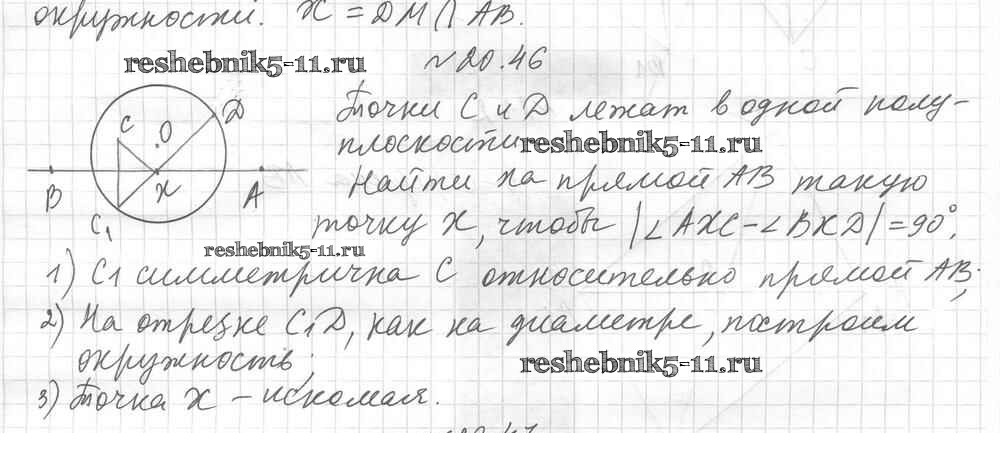 окружности. X = DM ∩ AB.
reshebnik5-11.ru
№20.46
C
O
D
B
X
A
C₁
Точки C и D лежат в одной полу-
плоскости
reshebnik5-11.ru
Найти на прямой AB такую
точку X, чтобы |∠AXC-∠BXD|=90°.
reshebnik5-11.ru
1) C1 симметрична C относительно прямой AB;
2) На отрезке C₁D, как на диаметре, построим
окружность;
reshebnik5-11.ru
3) Точка X – искомая.